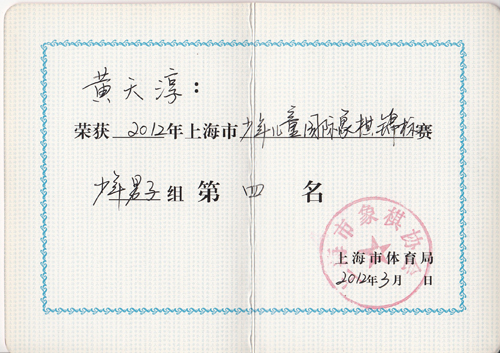 黄天淳：
荣获2012年上海市少年儿童国际象棋锦标赛
少年男子组第四名
上海市象棋协会
上海市体育局
2012年3月 日